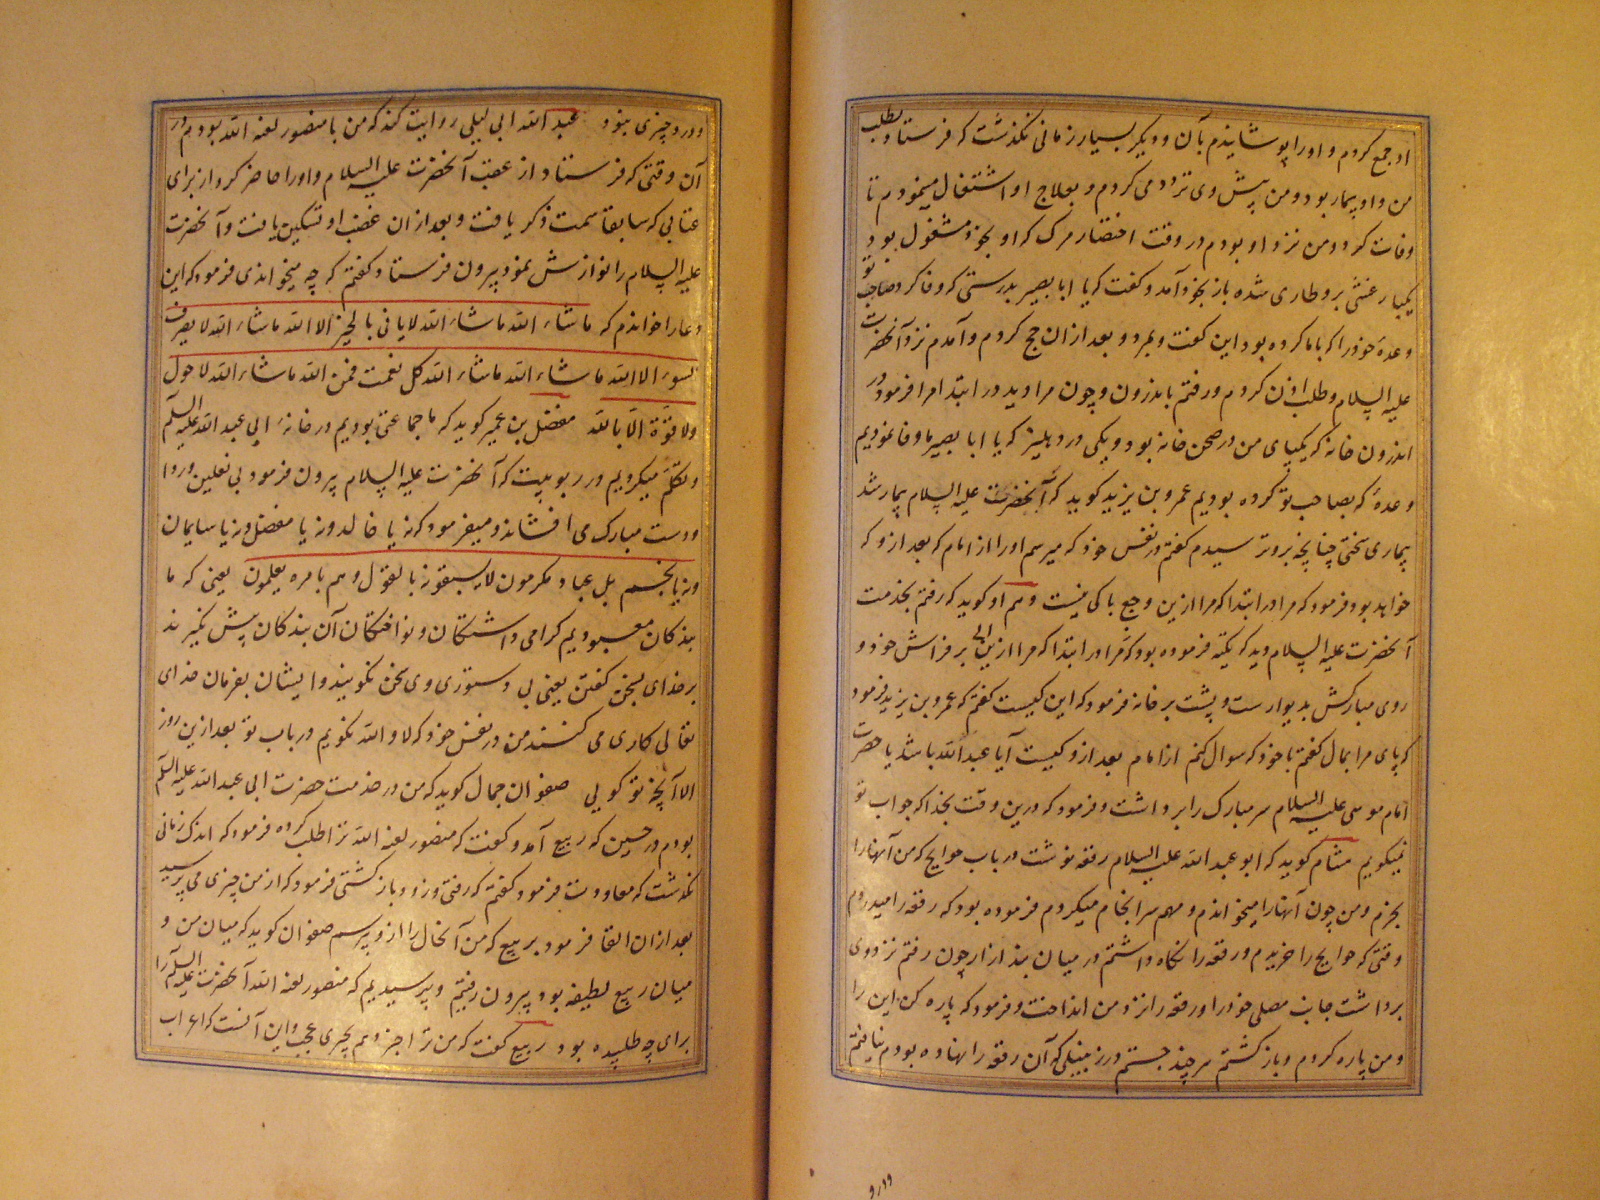 او جمع کردم و او را پوشانیدم بآن و دیگر بسیار زمانی نگذشت که فرستاد بطلب
من و او بیمار بود و من پیش وی تردد می کردم و بعلاج او اشتغال مینمودم تا
وفات کرد و من نزد او بودم در وقت احتضار مرگ که او بخود مشغول بود
یکبار غشی برو طاری شده باز بخود آمد و گفت که یا ابا بصیر بدرستی که وفا کرد صاحب تو
وعدهٔ خود را که با ما کرده بود این گفت و بمرد و بعد از ان حج کردم و آمدم نزد آنحضرت
علیه السلام و طلب اذن کردم و رفتم باندرون و چون مرا دید در ابتدا مرا فرمود و در
اندرون خانه که یکپای من در صحن خانه بود و یکی در دهلیز که یا ابا بصیر ما وفا نمودیم
وعدهٔ که بصاحب تو کرده بودیم عمرو بن یزید کوید که آنحضرت علیه السلام بیمار شد
بیماری سختی چنانچه برو ترسیدم گفتم در نفس خود که میپرسم او را از امام که بعد ازو که
خواهد بود فرمود که مرا در ابتدا که مرا ازین وجع باکی نیست و هم او کوید که رفتم بخدمت
آنحضرت علیه السلام و بر فراش خود و
روی مبارکش بدیوارست و پشت بر خانه فرمود که این کیست گفتم که عمرو بن یزید فرمود
که پای مرا بمال گفتم با خود که سوال کنم از امام بعد ازو کیست آیا عبد الله باشد یا حضرت
امام موسی علیه السلام سر مبارک را برداشت و فرمود که درین وقت بخدا که جواب تو
نمیگویم هشام کوید که ابو عبد الله علیه السلام رقعه نوشت در باب حوایج که من آنها را
بخرم و من چون آنها را میخواندم و مهم سرانجام میکردم فرموده بود که رقعه را میدروم
وقتی که حوایج را خریدم و رقعه را نگاه داشتم در میان چون رفتم نزد وی
برداشت جانب مصلی خود را و رقعه را نزد من انداخت و فرمود که پاره کن این را
و من پاره کردم و باز گشتم هر چند جستم در زنبیلی که آن رقعه را نهاده بودم نیافتم
و درو
و درو چیزی نبود عبد الله ابی لیلی روایت کند که من با منصور لعنه الله بودم در
آن وقتی که فرستاد از عقب آنحضرت علیه السلام و او را حاضر کرد از برای
عتابی که سابقا سمت ذکر یافت و بعد از ان غضب او تسکین یافت و آنحضرت
علیه السلام را نوازش نمود بیرون فرستاد گفتم که چه میخواندی فرمود که این
دعا را خواندم که ماشاء الله ماشاء الله لا یاتی بالخیر الا الله ماشاء الله لا یصرف
السوء الا الله ماشاء الله ماشاء الله کل نعمت فمن الله ماشاء الله لا حول
ولا قوة الا بالله مفضل بن عمر کوید که ما جماعتی بودیم در خانهٔ ابی عبد الله علیه السلم
و تکلم میکردیم در ربوبیت که آنحضرت علیه السلام بیرون فرمود بی نعلین و ردا
و دست مبارک می افشاند و میفرمود که نه یا خالد و نه یا مفضل و نه یا سلیمان
و نه یا نجم بل عباد مکرمون لا یسبقونه بالقول و هم بامره یعلمون یعنی که ما
بندکان معبودیم گرامی داشتکان و نواختکان آن بندکان پیش نگیرند
بر خدای بسخن گفتن یعنی بی دستوری وی سخن نگویند و ایشان بفرمان خدای
تعالی کاری می کنند من در نفس خود که لا والله نگویم در باب تو بعد ازین روز
الا آنچه تو گویی صفوان جمال کوید که من در خدمت حضرت ابی عبد الله علیه السلم
بودم در حین که ربیع آمد و گفت که منصور لعنه الله ترا طلب کرده فرمود که اندک زمانی
نگذشت که معاودت فرمود گفتم که رفتی و زود باز گشتی فرمود که از من چیزی می پرسید
بعد از ان القا فرمود بربیع که من آنحال را ازو بپرسم صفوان کوید که میان من و
میان ربیع لطیفه بود بیرون رفتیم و پرسیدیم که منصور لعنه الله آنحضرت علیه السلم را
برای چه طلبیده بود ربیع گفت که من ترا خبر دهم بچیزی عجب و این آنست که اعراب